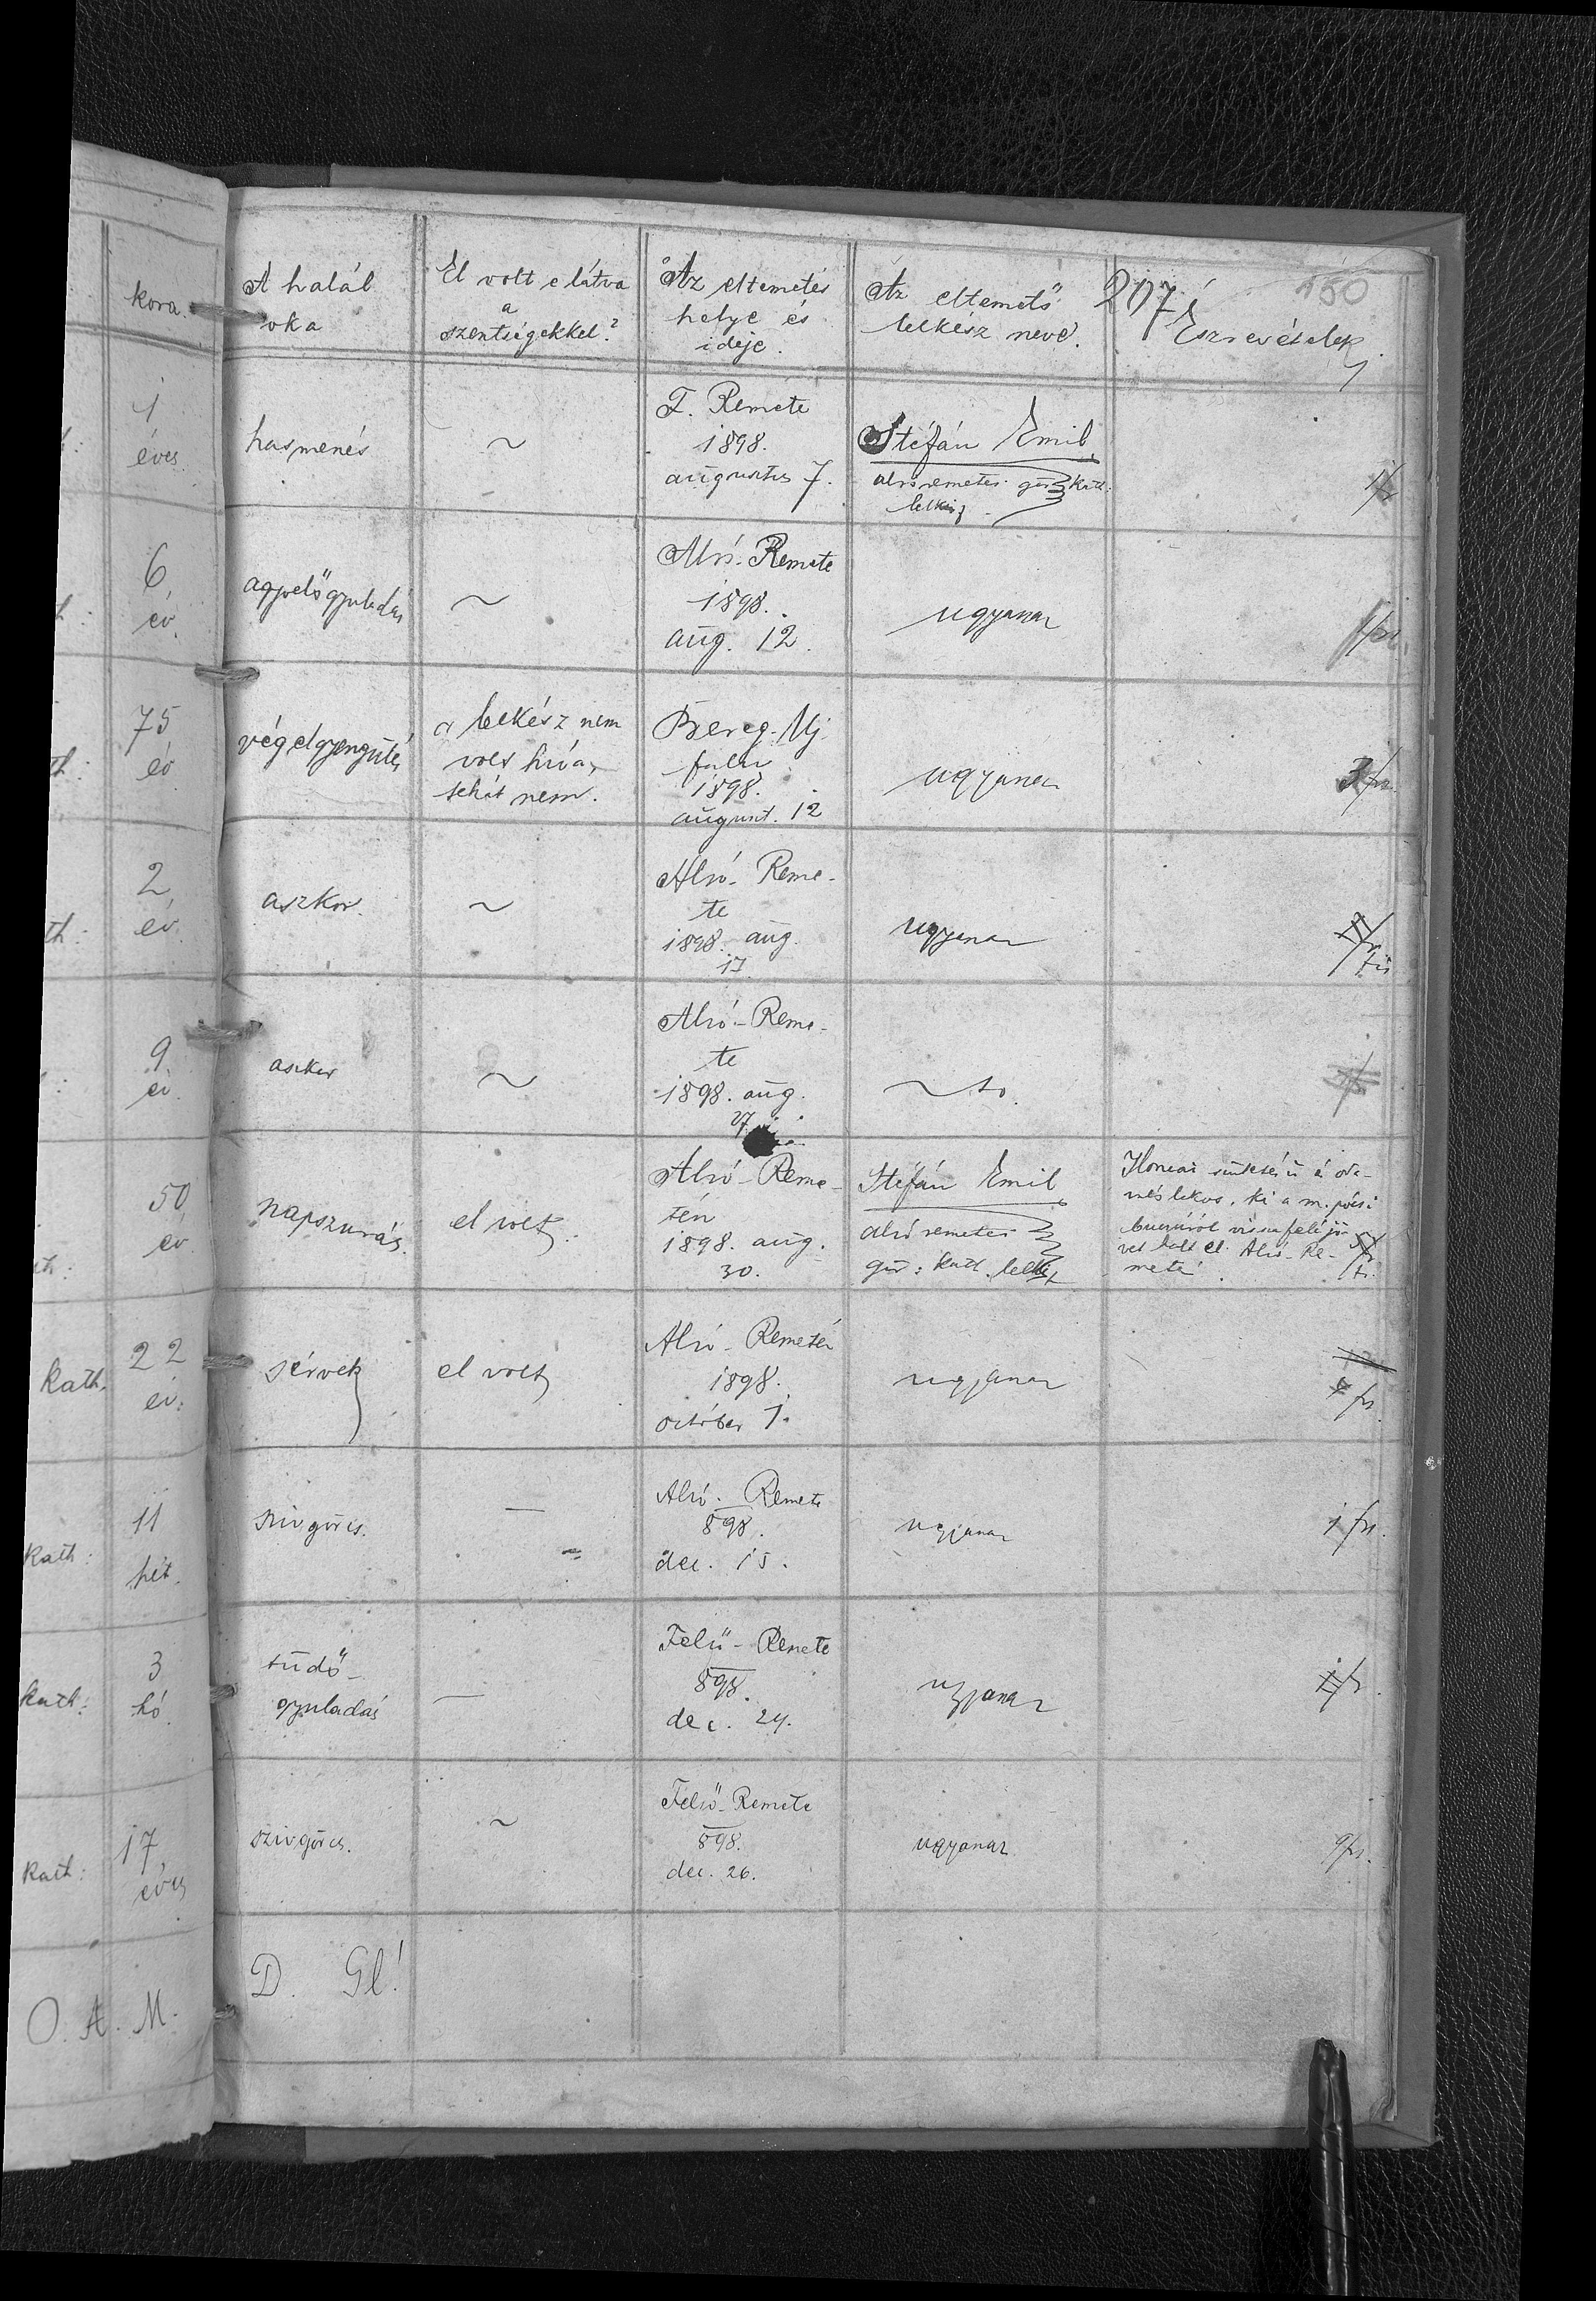 kora.
A halál
oka
El volt e látva
a
szentségekkel?
Az eltemetés
helye és
ideje.
Az eltemető
lelkész neve.
207
150
Észrevételek
1
éves.
hasmenés
~
F. Remete
1898.
augustus 7.
Stefán Emil
alsóremetei gör. kath.
lelkész
1 fr
6
év.
agyvelőgyuladás
~
Alsó-Remete
1898.
aug. 12.
ugyanaz
75
év
végelgyengülés
a lelkész nem
volt híva,
tehát nem.
Bereg-Uj
falu
1898.
august. 12
ugyanaz
2
év.
th:
aszkor.
~
Alsó-Reme-
te
1898. aug.
17.
ugyanaz
9
év.
aszkor
~
Alsó-Reme-
te
1898. aug.
27
~ to.
50
év
napszurás.
el volt.
Alsó-Reme-
tén
1898. aug.
30.
Stefán Emil
alsó remetei
gör: kath. lelkész
Ilonczai születésű és oda-
lakos, ki a m. pócsi
bucsúról visszafelé jö-
vet halt el Alsó-Re-
mete
kath.
22
év.
sérvek
el volt
Alsó-Remetén
1898.
október 1.
ugyanaz
kath:
11
hét.
szivgörcs.
—
Alsó-Remete
898.
dec. 15.
ugyanaz
1 fr.
kath:
3
hó.
tüdő-
gyuladás
—
Felső-Remete
898.
dec. 24.
ugyanaz
kath:
17,
éves
szivgörcs.
~
Felső-Remete
898.
dec. 26.
ugyanaz
O. A. M.
D. Gl!